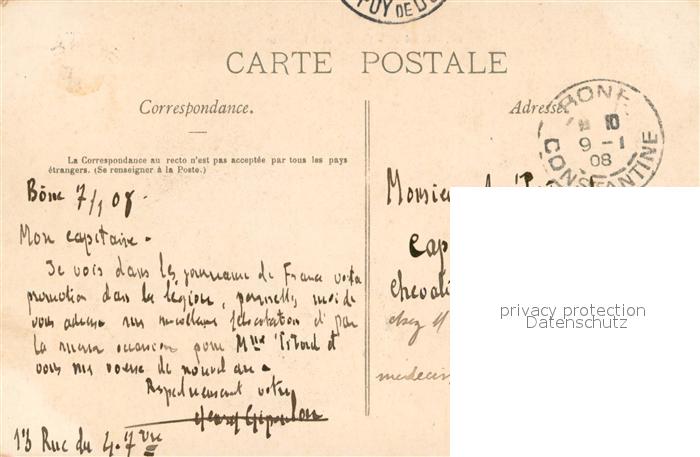 PUY DE D
CARTE POSTALE
Correspondance.
Adresse.
BONE
10
9 - 1
08
CONSTANTINE
La Correspondance au recto n'est pas acceptée par tous les pays
étrangers. (Se renseigner à la Poste.)
Bône 7/1 08.
Mon capitaine -
Je vois dans les journaux de France votre
promotion dans la légion, permettez moi de
vous adresser mes meilleures félicitations et par
la même occasion pour Mme et
vous mes voeux de nouvel an -
Respectueusement votre
Henry
13 Rue du 4. 7bre
Monsieur
Cap
Cheval
chez M
medecin
privacy protection
Datenschutz